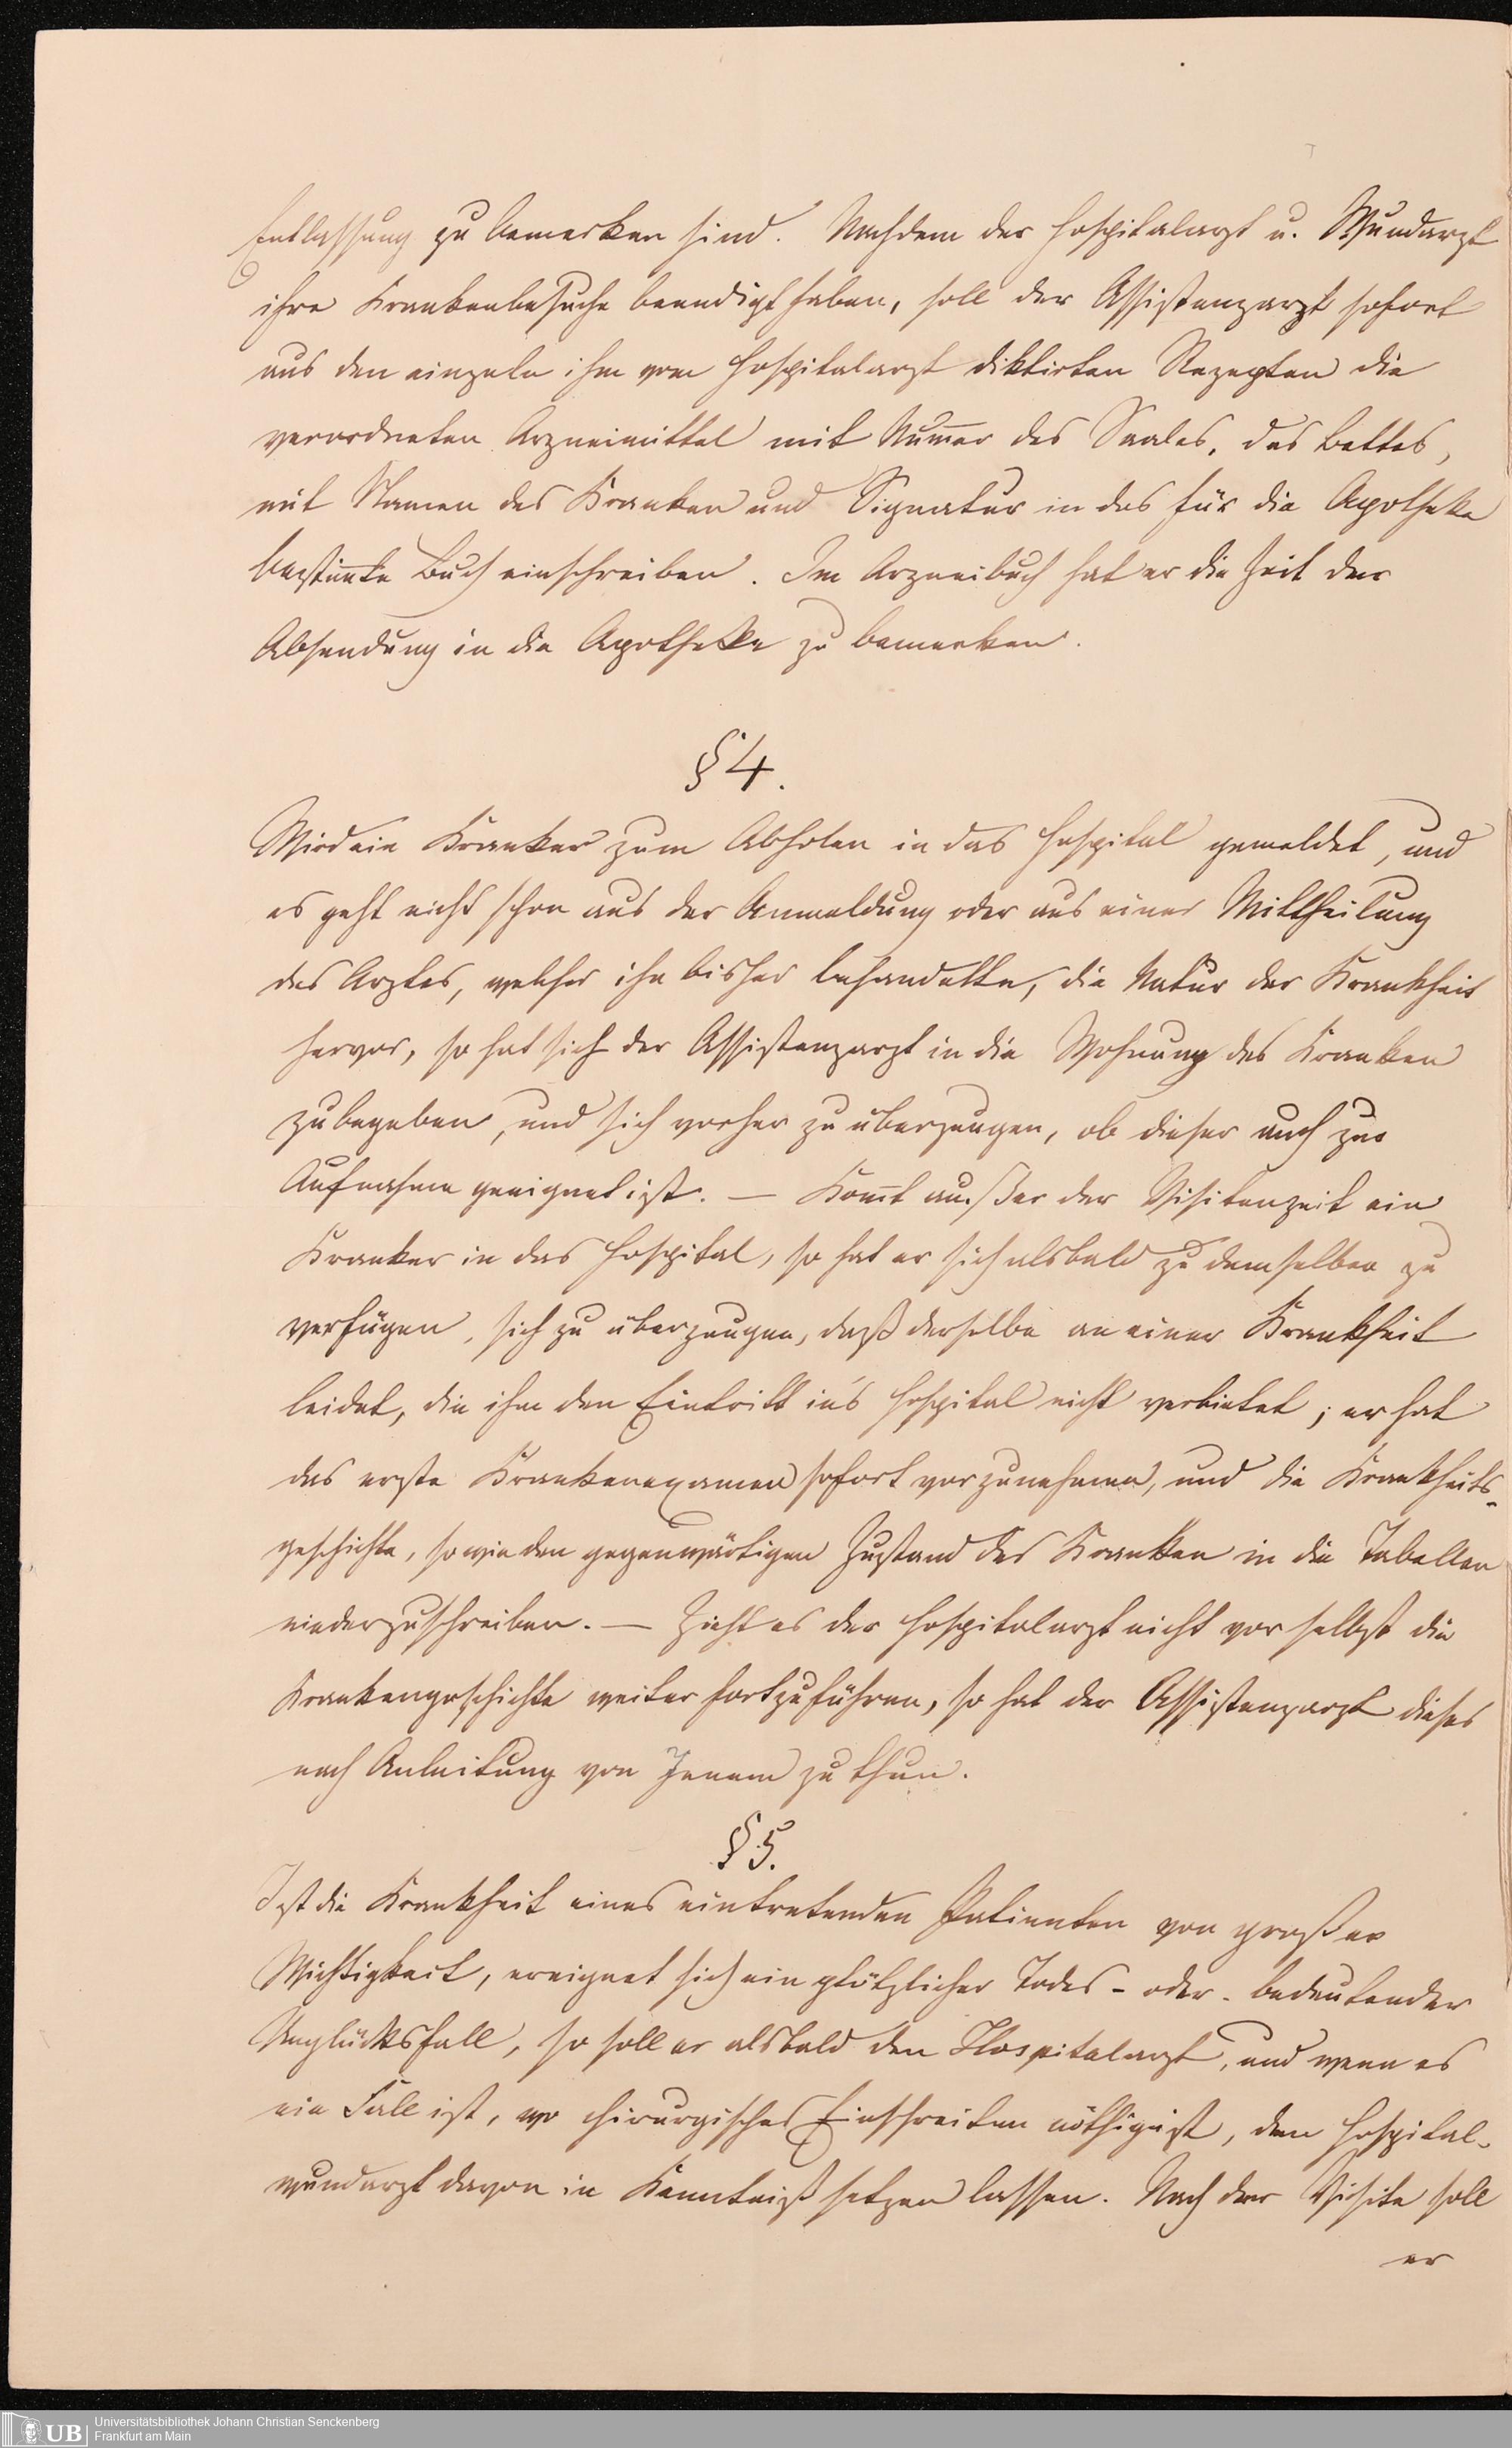 Entlassung zu bemerken sind. Nachdem der Hospitalarzt u. Wundarzt
ihre Krankenbesuche beendigt haben, soll der Assistenzarzt sofort
aus den einzeln ihm vom Hospitalarzt diktirten Rezepten die
verordneten Arzneimittel mit Num̄er des Saales, des Bettes,
mit Namen des Kranken und Signatur in das für die Apotheke
bestim̄te Buch einschreiben. Im Arzneibuch hat er die Zeit der
Absendung in die Apotheke zu bemerken.
§ 4.
Wird ein Kranker zum Abholen in das Hospital gemeldet, und
es geht nicht schon aus der Anmeldung oder aus einer Mittheilung
des Arztes, welcher ihn bisher behandelte, die Natur der Krankheit
hervor, so hat sich der Assistenzarzt in die Wohnung des Kranken
zu begeben, und sich vorher zu überzeugen, ob dieser auch zur
Aufnahme geeignet ist. — Kom̄t außer der Visitenzeit ein
Kranker in das Hospital, so hat er sich alsbald zu demselben zu
verfügen, sich zu überzeugen, daß derselbe an einer Krankheit
leidet, die ihm den Eintritt in's Hospital nicht verbietet; er hat
das erste Krankenexamen sofort vorzunehmen, und die Krankheits-
geschichte, sowie den gegenwärtigen Zustand des Kranken in die Tabellen
niederzuschreiben. — Zieht es der Hospitalarzt nicht vor selbst die
Krankengeschichte weiter fortzuführen, so hat der Assistenzarzt dieses
nach Anleitung von Jenem zu thun.
§ 5.
Ist die Krankheit eines eintretenden Patienten von großer
Wichtigkeit, ereignet sich ein plötzlicher Todes- oder bedeutender
Unglücksfall, so soll er alsbald den Hospitalarzt, und wenn es
ein Fall ist, wo chirurgisches Einschreiten nöthig ist, den Hospital-
wundarzt davon in Kenntniß setzen lassen. Nach der Visite soll
er
Universitätsbibliothek Johann Christian Senckenberg
Frankfurt am Main
UB